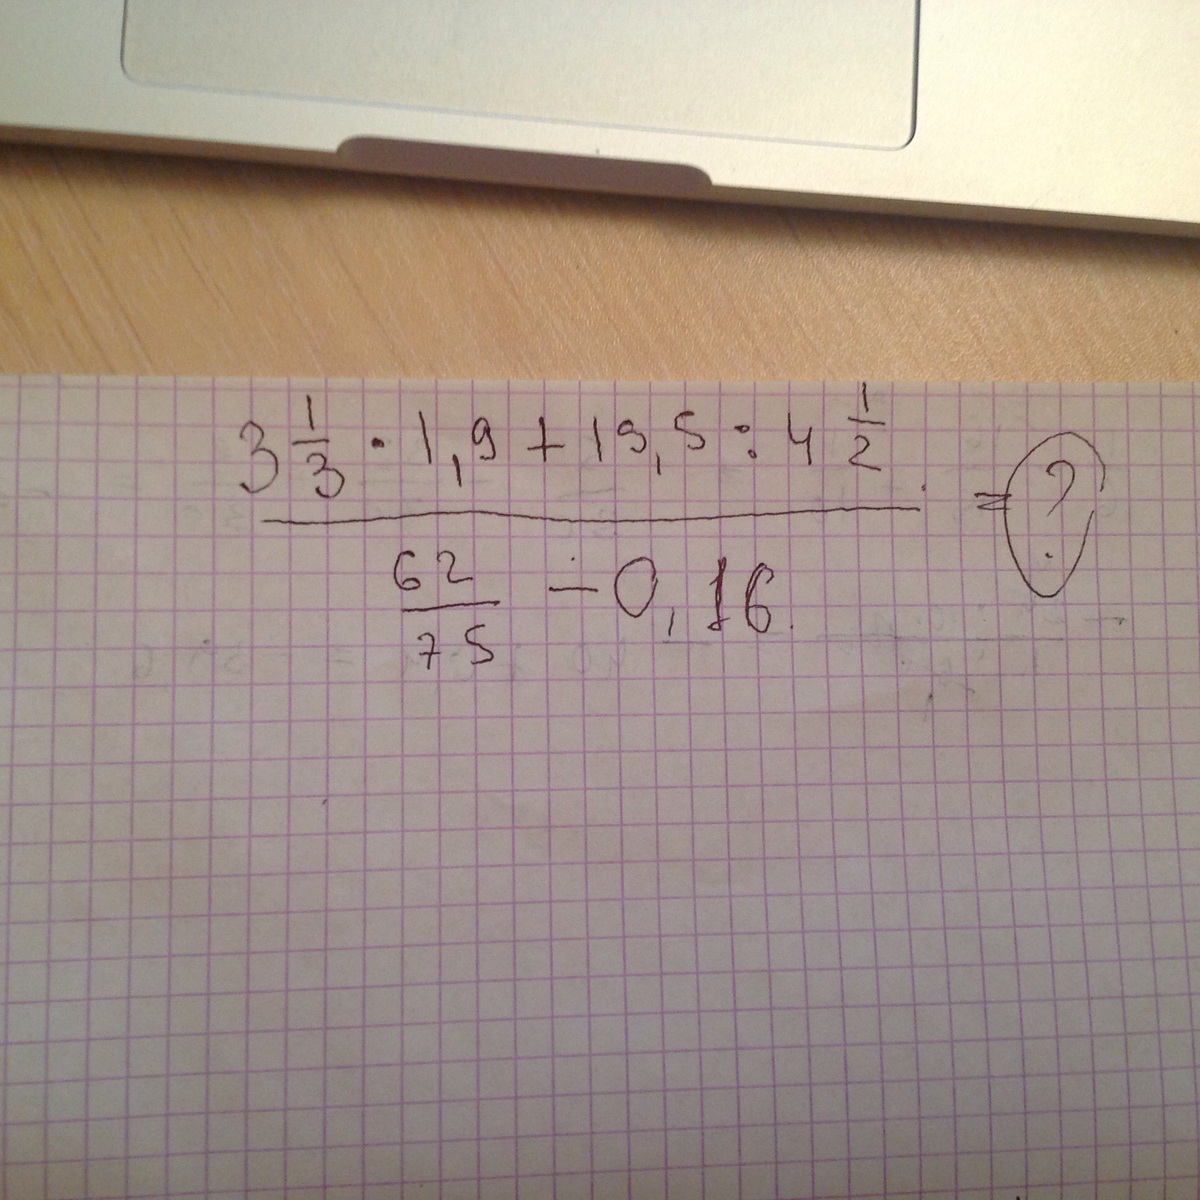 3 1/3 · 1,9 + 19,5 : 4 1/2
= ?
62/75 - 0,16